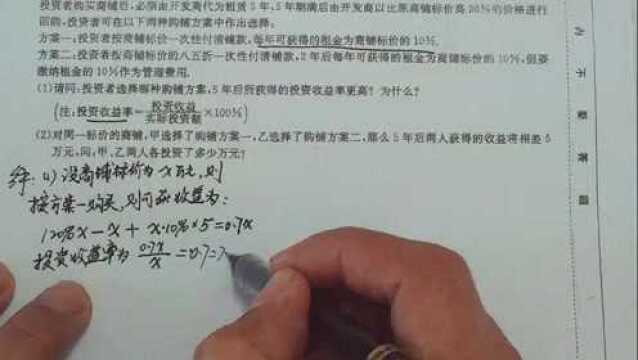 投资者购买商铺后,必须由开发商代为租赁5年,5年期满后由开发商以比原商铺标价高20%的价格进行
回购,投资者可在以下两种购铺方案中作出选择:
方案一:投资者按商铺标价一次性付清铺款,每年可获得的租金为商铺标价的10%.
方案二:投资者按商铺标价的八五折一次性付清铺款,2年后每年可获得的租金为商铺标价的10%,但要
缴纳租金的10%作为管理费用.
(1)请问:投资者选择哪种购铺方案,5年后所获得的投资收益率更高?为什么?
(注:投资收益率=投资收益/实际投资额×100%)
(2)对同一标价的商铺,甲选择了购铺方案一,乙选择了购铺方案二,那么5年后两人获得的收益将相差5
万元,问:甲、乙两人各投资了多少万元?
解:(1)设商铺标价为x万元,则
按方案一购买,则可获收益为:
120%x-x+x·10%×5=0.7x
投资收益率为0.7x/x=0.7=7
不
要
答
题